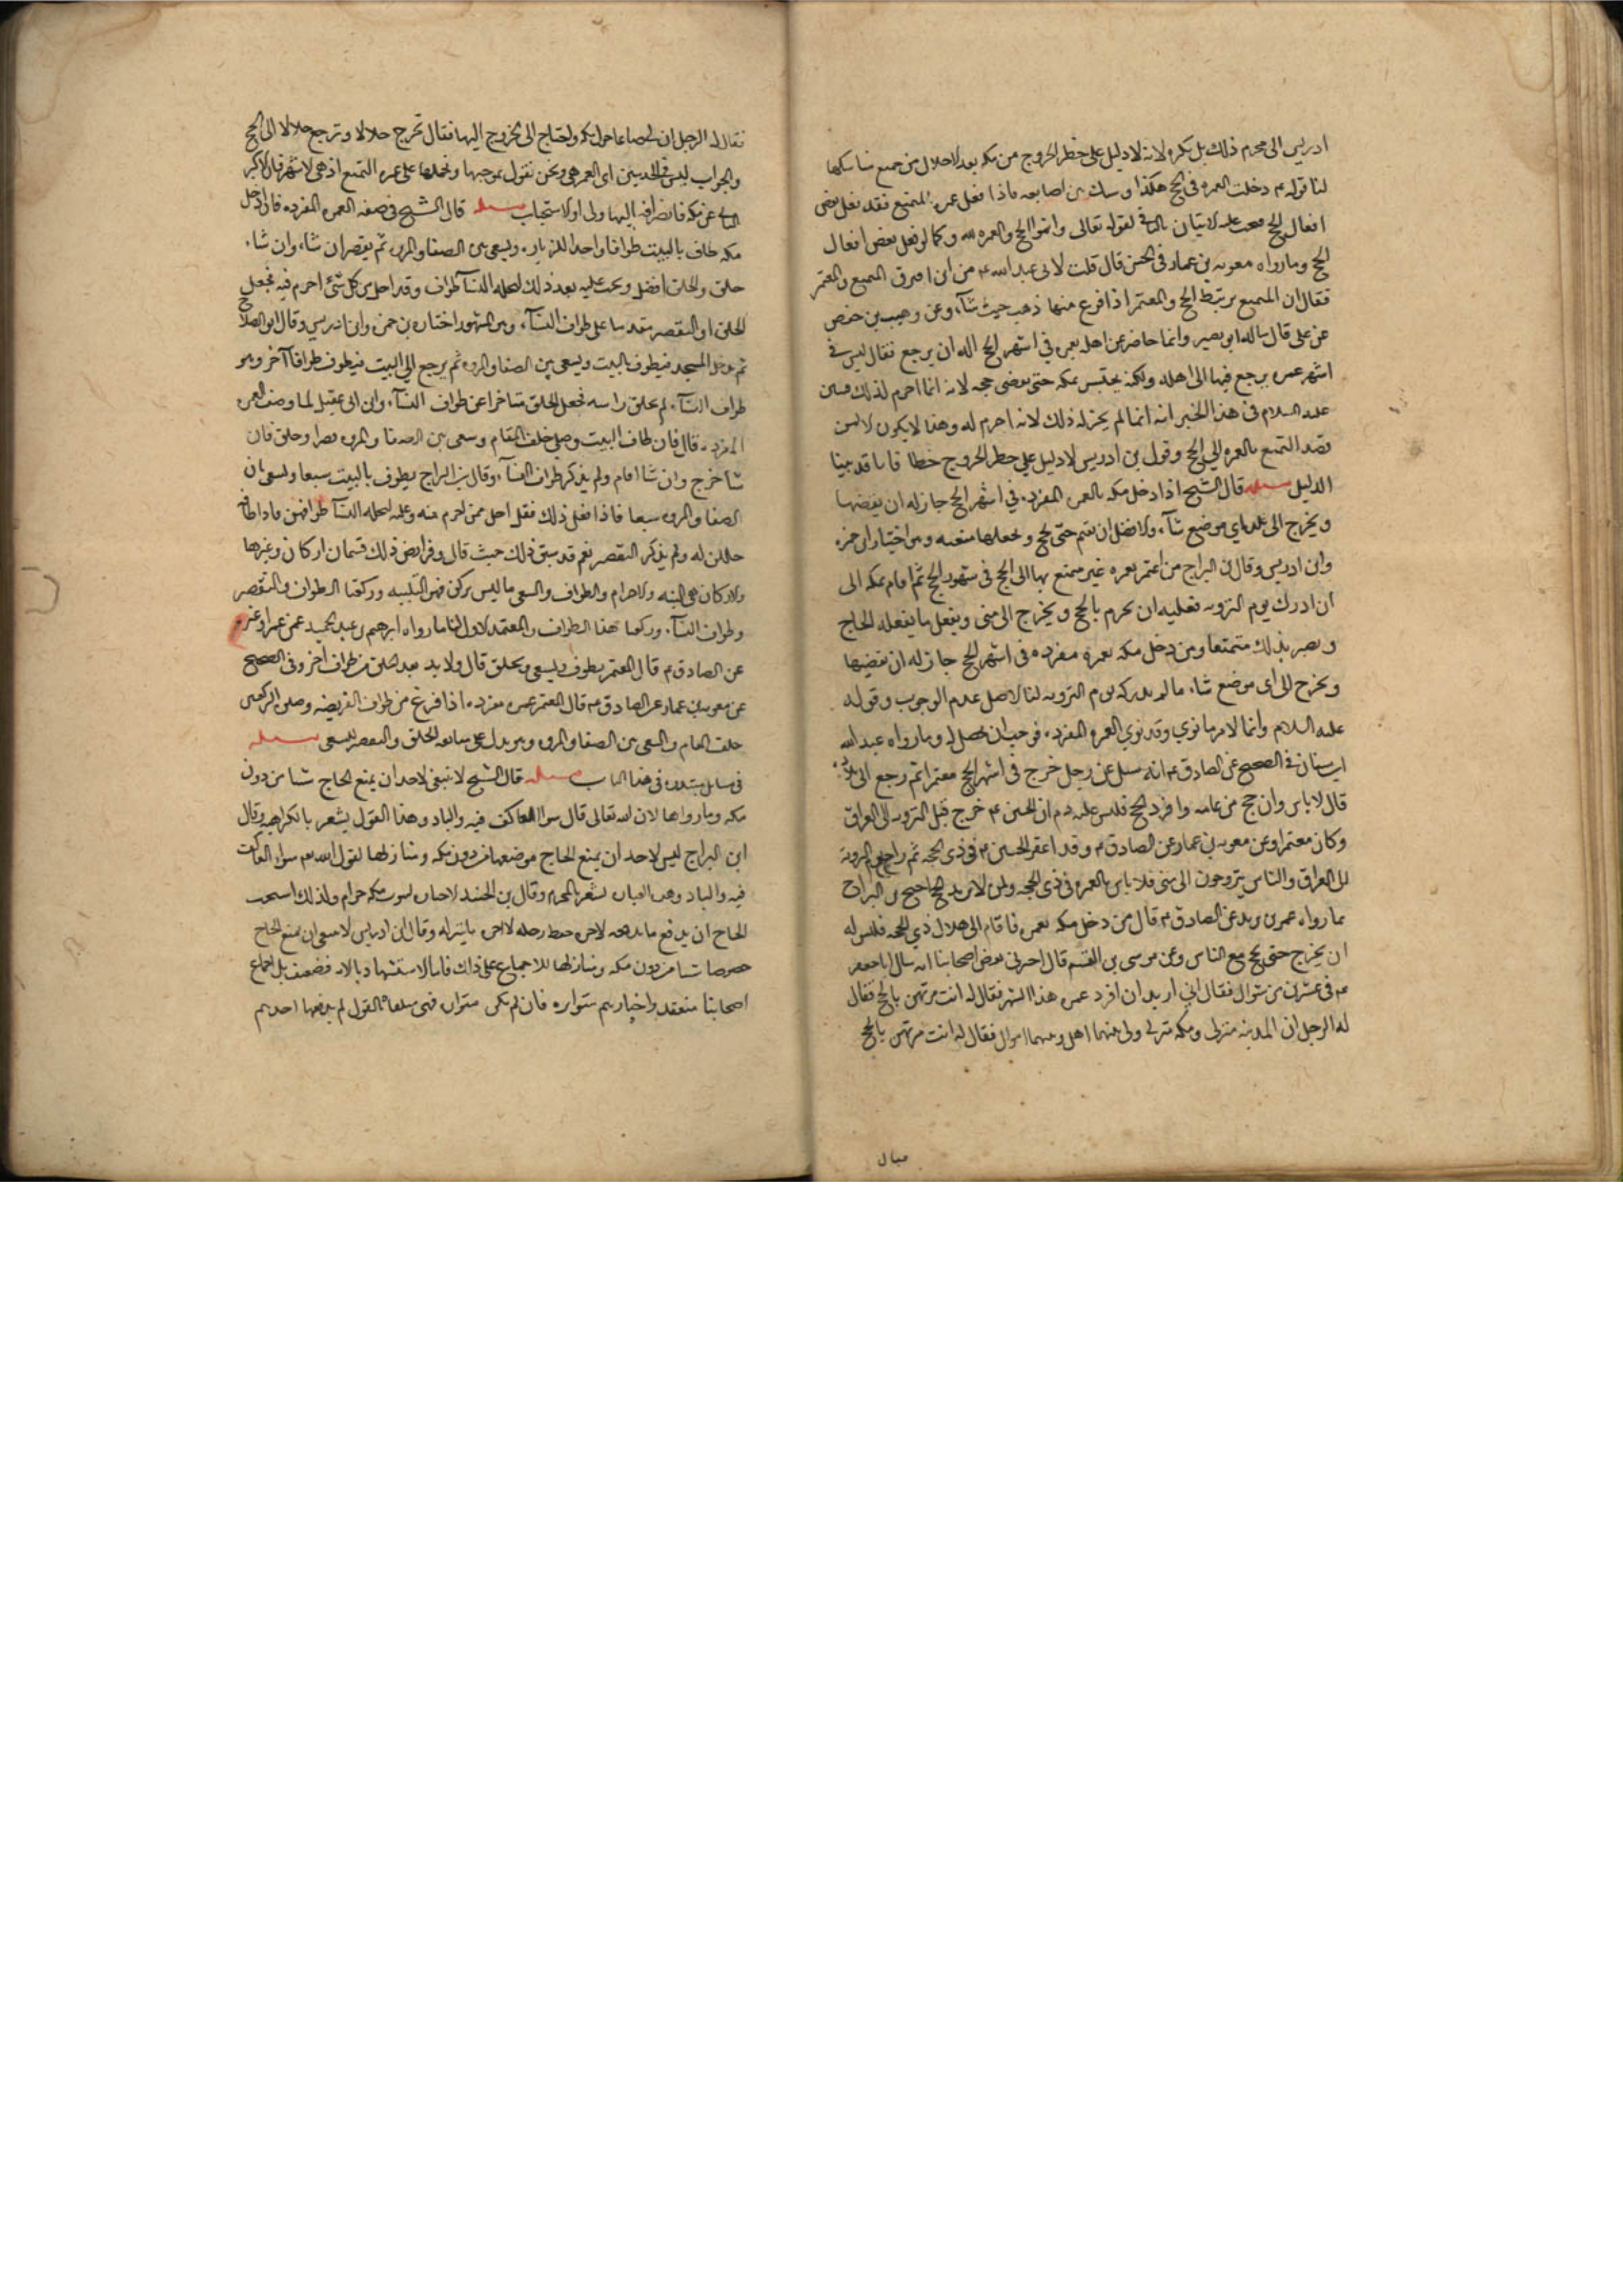 ادريس الى محرم ذلك بل يكره لانه لا دليل على حظر الخروج من مكه بعد الاحلال من جميع مناسكها
لنا قوله م دخلت العمره فى الحج هكذا وشبك بين اصابعه فاذا فعل عمره المتمتع فقد فعل بعض
افعال الحج فيجب عليه الاتيان بالباقي لقوله تعالى واتموا الحج والعمره لله وكما لو فعل بعض افعال
الحج وما رواه معويه بن عمار فى الحسن قال قلت لابى عبد الله م من اين افترق المتمتع والمعتمر
فقال ان المتمتع مرتبط بالحج والمعتمر اذا فرغ منها ذهب حيث شآء وعن وهيب بن حفص
عن على قال ساله ابو بصير وانا حاضر عن اهل بعمره في اشهر الحج اله ان يرجع فقال ليس في
اشهر عمره يرجع فيها الى اهله ولكنه يحتبس بمكه حتى يقضى حجه لانه انما احرم لذلك فبين
عليه السلام فى هذا الخبر انه انما لم يجز له ذلك لانه احرم له وهذا لا يكون الا لمن
قصد التمتع بالعمره الى الحج وقول بن ادريس لا دليل على حظر الخروج خطا فانا قد بينا
الدليل مسئله قال الشيخ اذا دخل مكه بالعمره المفرده في اشهر الحج جاز له ان يقضيها
ويخرج الى بلده او اي موضع شآء والافضل ان يقيم حتى يحج ويجعلها متعه وهو اختيار ابن حمزه
وابن ادريس وقال بن البراج من اعتمر بعمره غير متمتع بها الى الحج فى شهور الحج ثم اقام بمكه الى
ان ادرك يوم الترويه فعليه ان يحرم بالحج ويخرج الى منى ويفعل ما يفعله الحاج
ويصير بذلك متمتعا ومن دخل مكه بعمره مفرده فى اشهر الحج جاز له ان يقضيها
ويخرج الى اى موضع شاء ما لم يدركه يوم الترويه لنا الاصل عدم الوجوب وقوله
عليه السلام وانما لامرء ما نوي وقد نوي العمره المفرده فوجب ان يحصل له وما رواه عبد الله
ابن سنان فى الصحيح عن الصادق م انه سئل عن رجل خرج فى اشهر الحج معتمرا ثم رجع الى بلاده
قال لا باس وان حج من عامه وافرد الحج فليس عليه دم ان الحسين م خرج قبل الترويه الى العراق
وكان معتمرا وعن معويه بن عمار عن الصادق م وقد اعتمر الحسين م فى ذى الحجه ثم راح يوم الترويه
الى العراق والناس يتروحون الى منى فلا باس بالعمره فى ذى الحجه ولمن لا يريد الحج احتج بن البراج
بما رواه عمر بن يزيد عن الصادق م قال من دخل مكه بعمره فاقام الى هلال ذي الحجه فليس له
ان يخرج حتى يحج مع الناس وعن موسى بن القسم قال اخبرنى بعض اصحابنا انه سال ابا جعفر
م فى عشر من شوال فقال اني اريد ان افرد عمره هذا الشهر فقال له انت مرتهن بالحج فقال
له الرجل ان المدينه منزلى ومكه منزلى ولى بينهما اهل وبينهما اموال فقال له انت مرتهن بالحج
فقال له الرجل ان لى ضياعا حول مكه واحتاج الى الخروج اليها فقال تخرج حلالا وترجع حلالا الى الحج
والجواب ليس فى الحديثين اى العمره هى ونحن نقول بموجبهما ونحملها على عمره التمتع اذ هى لاشهر
عن مكه فانصرافه اليها اولى او الاستحباب مسئله قال الشيخ فى صفه العمره المفرده فاذا دخل
مكه طاف بالبيت طوافا واحدا للزياره ويسعى بين الصفا والمروه ثم يقصر ان شاء وان شاء
حلق والحلق افضل ويجب عليه بعد ذلك لتحله النسآء طواف وقد احل من كل شئ احرم فيه فجعل
الحلق او التقصير مقدما على طواف النسآء وهو المشهور اختاره بن حمزه وابن ادريس وقال ابو الصلاح
ثم يدخل المسجد فيطوف بالبيت ويسعى بين الصفا والمروه ثم يرجع الى البيت فيطوف طوافا آخر وهو
طواف النسآء ثم يحلق راسه فجعل الحلق متاخرا عن طواف النسآء وابن ابى عقيل لما وصف العمره
المفرده قال فان طاف بالبيت وصلى خلف المقام وسعى بين الصفا والمروه قصر او حلق فان
شآ خرج وان شا اقام ولم يذكر طواف النسآء وقال بن البراج يطوف بالبيت سبعا ويسعى بين
الصفا والمروه سبعا فاذا فعل ذلك فقد احل مما احرم منه وعليه لتحله النسآ طوافهن فاذا طافه
حللن له ولم يذكر التقصير نعم قد سبق ذلك حيث قال وفرايض ذلك قسمان اركان وغيرها
والاركان هى النيه والاحرام والطواف والسعى وما ليس بركن فهو التلبيه وركعتا الطواف والتقصير
وطواف النسآء وركعتا هذا الطواف والمعتمد الاول لنا ما رواه ابرهيم بن عبد الحميد عن عمر او غيره
عن الصادق م قال المعتمر يطوف ويسعى ويحلق قال ولا بد بعد الحلق من طواف آخر وفى الصحيح
عن معويه بن عمار عن الصادق م قال المعتمر عمره مفرده اذا فرغ من طواف الفريضه وصلى الركعتين
خلف المقام والسعى بين الصفا والمروه وهو يدل على متابعه الحلق والتقصير للسعى مسئله
فى هذا الباب مسئله قال الشيخ لا ينبغى لاحد ان يمنع الحاج شيا من دور
مكه ومنازلها لان الله تعالى قال سواء العاكف فيه والباد وهذا القول يشعر بالكراهيه وقال
ابن البراج ليس لاحد ان يمنع الحاج موضعا من دور مكه ومنازلها لقول الله تعالى سواء العاكف
فيه والباد وهذه العباره تشعر بالتحريم وقال بن الجنيد الاجاره لبيوت مكه حرام ولذلك استحب
للحاج ان يدفع ما يدفعه لاجره حفظ رحله لا اجره ما ينزله وقال ابن ادريس لا ينبغى ان يمنع الحاج
خصوصا شيا من دور مكه ومنازلها للاجماع على ذلك فاما الاستشهاد بالايه فضعيف بل اجماع
اصحابنا منعقد واخبارهم متواتره فان لم تكن متواتره فهى متلقاه القول لم يدفعها احد منهم